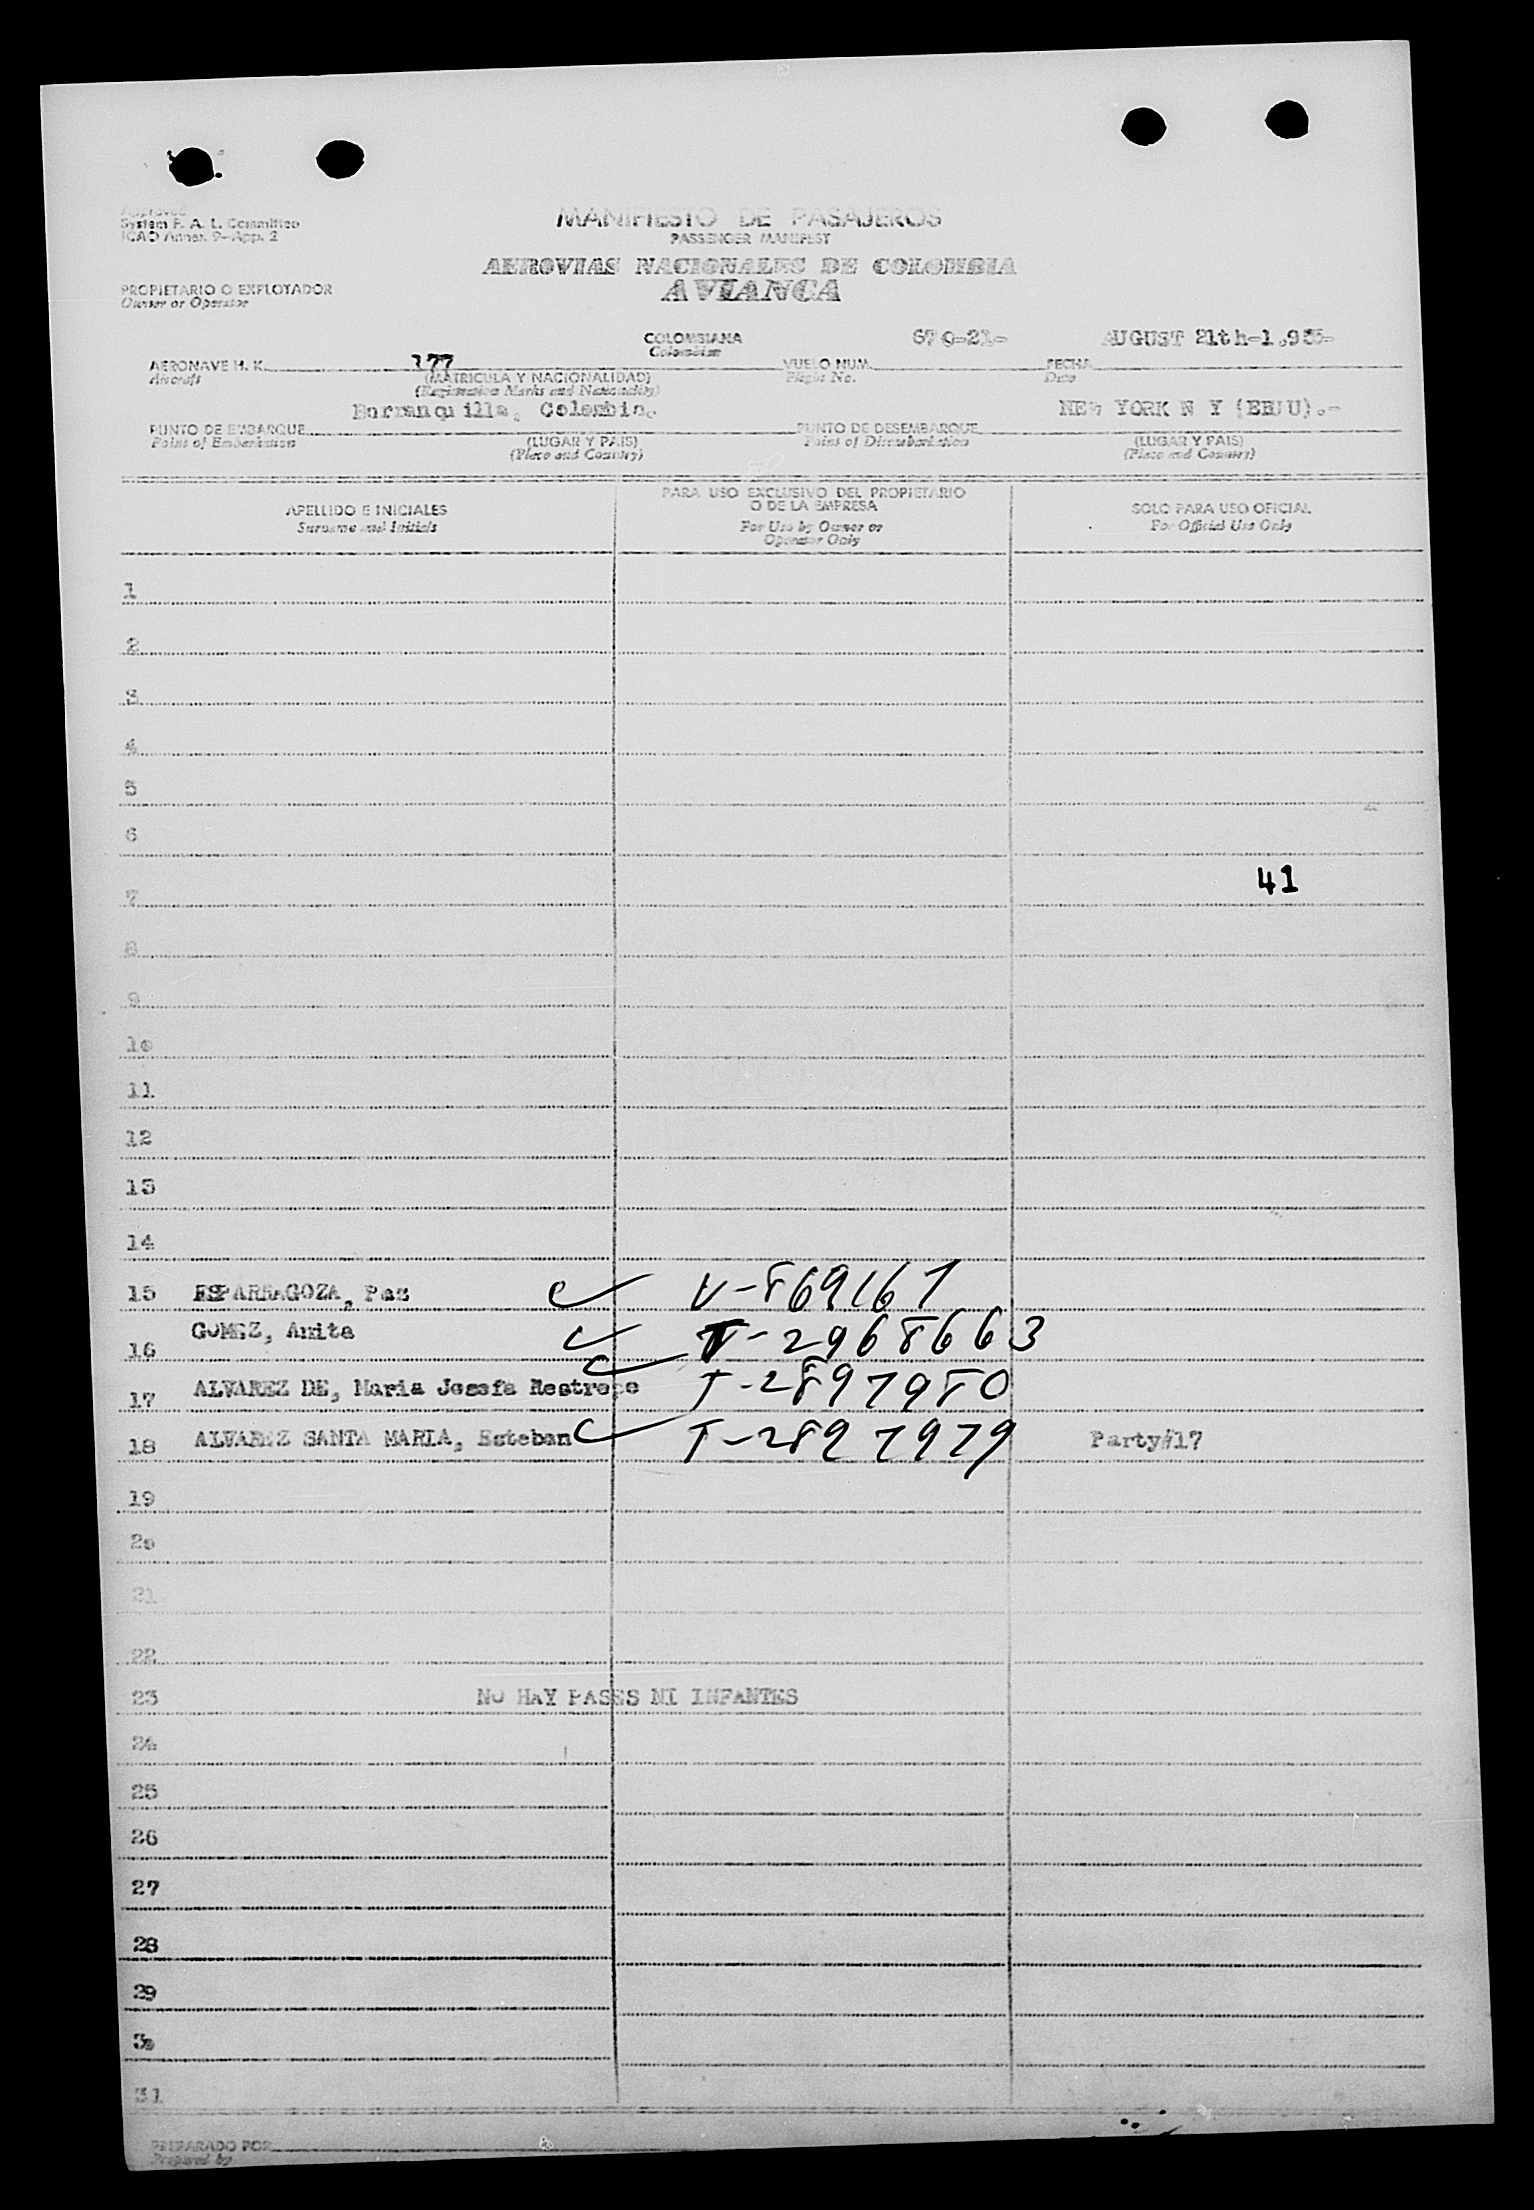 Approved
System F. A. L. Committee
ICAO Annex. 9-App. 2
MANIFIESTO DE PASAJEROS
PASSENGER MANIFEST
AEROVIAS NACIONALES DE COLOMBIA
AVIANCA
PROPIETARIO O EXPLOTADOR
Owner or Operator
COLOMBIANA
Colombian
670-21-
AUGUST 21th-1.955-
AERONAVE H. K. 177
VUELO NUM.
FECHA
Aircraft
(MATRICULA Y NACIONALIDAD)
Flight No.
Date
(Registration Marks and Nationality)
Barranquilla, Colombia.
NEW YORK N Y (EEUU).-
PUNTO DE EMBARQUE
PUNTO DE DESEMBARQUE
Point of Embarkation
(LUGAR Y PAIS)
Point of Disembarkation
(LUGAR Y PAIS)
(Place and Country)
(Place and Country)
APELLIDO E INICIALES
Surname and Initials
PARA USO EXCLUSIVO DEL PROPIETARIO
O DE LA EMPRESA
For Use by Owner or
Operator Only
SOLO PARA USO OFICIAL
For Official Use Only
1
2
3
4
5
6
41
7
8
9
1o
11
12
13
14
15 ESPARRAGOZA, Paz V-869167
16 GOMEZ, Anita T-2968663
17 ALVAREZ DE, Maria Josefa Restrepo T-2897980
18 ALVAREZ SANTA MARIA, Esteban T-2897979 Party#17
19
2o
21
22
23 NO HAY PASES NI INFANTES
24
25
26
27
28
29
3o
31
PREPARADO POR
Prepared by